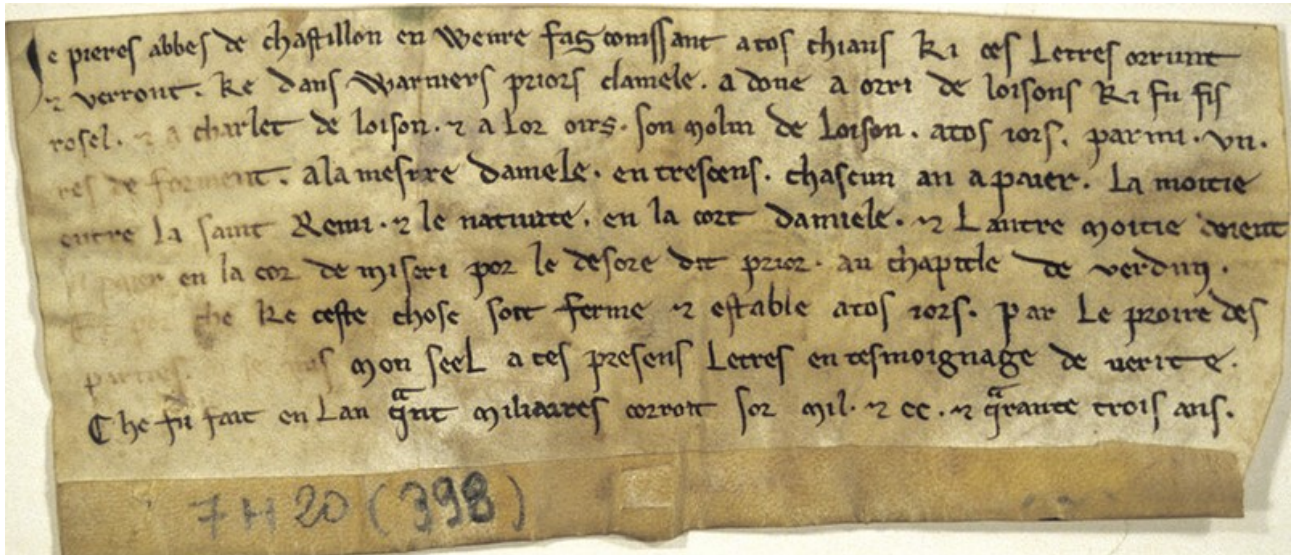 Je pieres abbes de chastillon en weure fag conissant a tos chiaus ki ces letres orrunt
⁊ verront. ke dans warniers priors damele. a done a orri de loisons ki fu fis
rosel. ⁊ a charlet de loison. ⁊ a lor oirs. son molin de loison. a tos iors. parmi. vn.
res de forment. a la mesure damele. en trescens. chascun an a paier. la moitie
entre la saint Remi. ⁊ le natiuite. en la cort damiele. ⁊ lautre moitie doient
paier en la cor de miseri por le desore dit prior. au chapitle de verdun.
ke ceste chose soit ferme ⁊ estable a tos iors. par le proiere des
parties. mon seel a ces presens letres en tesmoignage de uerite.
Che fu fait en lan qᵃnt miliaires corroit sor mil. ⁊ cc. ⁊ qᵃrante trois ans.
7 H 20 (398)